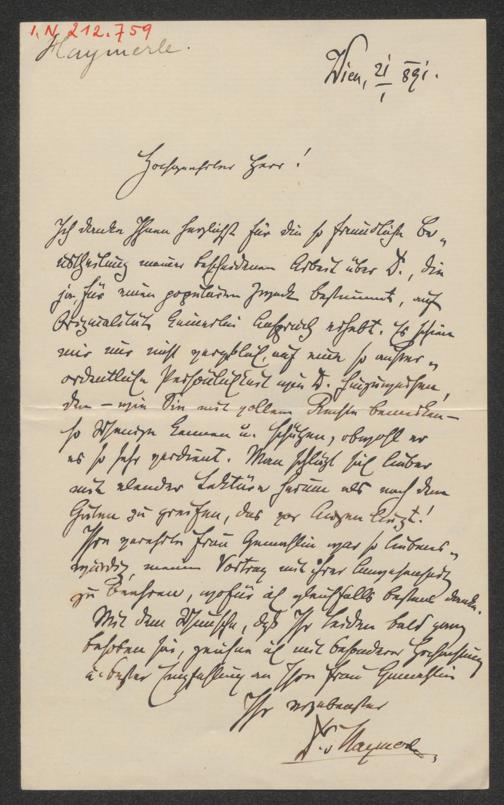 I.N. 212.759
Haymerle.
Wien, 21/1 891.
Hochgeehrter Herr!
Ich danke Ihnen herzlichst für die so freundliche Be-
urtheilung meiner bescheidenen Arbeit über D., die
ja für einen populären Zweck bestimmt, auf
Originalität keinerlei Anspruch erhebt. Es schien
mir nur nicht vergeblich, auf eine so außer-
ordentliche Persönlichkeit wie D. hinzuweisen,
den – wie Sie mit vollem Rechte bemerken –
so Wenige kennen u. schätzen, obwohl er
es so sehr verdient. Man schlägt sich lieber
mit elender Lektüre herum als nach dem
Guten zu greifen, das vor Augen liegt!
Ihre verehrte Frau Gemahlin war so liebens-
würdig, meinen Vortrag mit ihrer Anwesenheit
zu beehren, wofür ich gleichfalls bestens danke.
Mit dem Wunsche, daß Ihr Leiden bald ganz
behoben sei, zeichne ich mit besonderer Hochachtung
u. bester Empfehlung an Ihre Frau Gemahlin
Ihr ergebenster
Dr. v. Haymerle